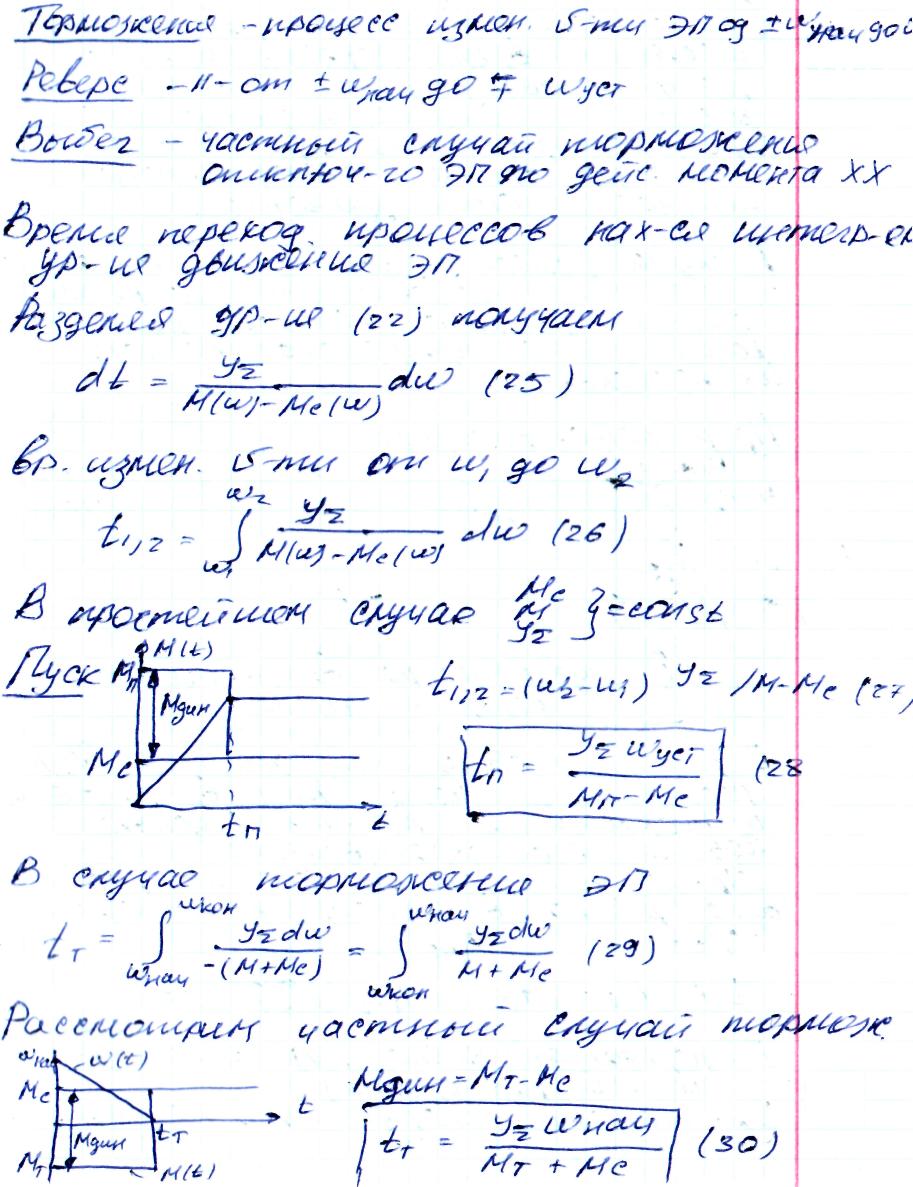 Торможения - процесс измен. υ-ти ЭП од ±ωнач до 0
Реверс -//- от ±ωнач до ∓ ωуст
Выбег - частный случай торможения
отключ-го ЭП по дейс. момента ХХ
Время переход. процессов нах-ся интегр-ем
ур-ия движения ЭП
Разделяя ур-ие (22) получаем
dt = JΣ / (M(ω) - Mc(ω)) dω (25)
Вр. измен. υ-ти от ω1 до ω2
t1,2 = ∫ω1^ω2 JΣ / (M(ω) - Mc(ω)) dω (26)
В простейшем случае Mc M JΣ } = const
Пуск Mп M(t) Mдин Mc tп t
t1,2 = (ω2 - ω1) JΣ / M - Mc (27)
tп = JΣ ωуст / (Mп - Mc) (28
В случае торможения ЭП
tт = ∫ωнач^ωкон JΣ dω / -(M + Mc) = ∫ωкон^ωнач JΣ dω / (M + Mc) (29)
Рассмотрим частный случай тормож.
ωнач ω(t) Mc Mдин Mт tт t M(t)
Mдин = Mт - Mc
tт = JΣ ωнач / (Mт + Mc) (30)